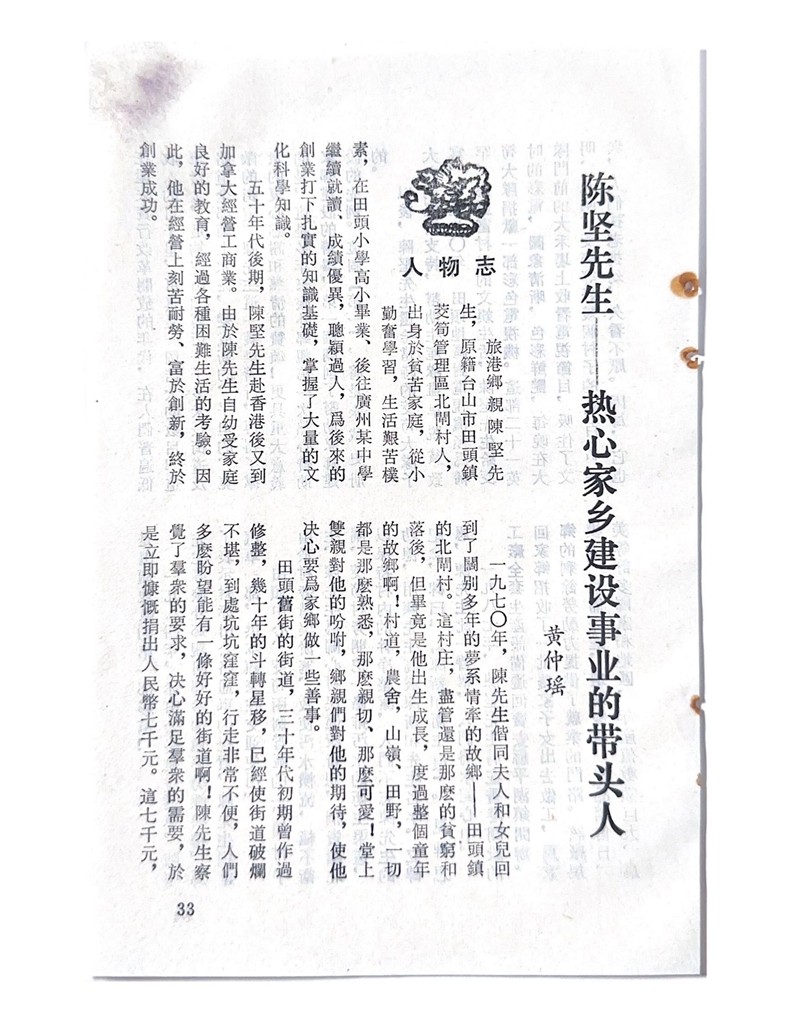 陈坚先生——热心家乡建设事业的带头人
黄仲瑶
人物志
旅港鄉親陳堅先
生，原籍台山市田頭鎮
茭筍管理區北閘村人，
出身於貧苦家庭，從小
勤奮學習，生活艱苦樸
素，在田頭小學高小畢業、後往廣州某中學
繼續就讀、成績優異，聰穎過人，爲後來的
創業打下扎實的知識基礎，掌握了大量的文
化科學知識。
五十年代後期，陳堅先生赴香港後又到
加拿大經營工商業。由於陳先生自幼受家庭
良好的教育，經過各種困難生活的考驗。因
此，他在經營上刻苦耐勞、富於創新，終於
創業成功。
一九七〇年，陳先生偕同夫人和女兒回
到了闊别多年的夢系情牽的故鄉——田頭鎮
的北閘村。這村庄，盡管還是那麽的貧窮和
落後，但畢竟是他出生成長，度過整個童年
的故鄉啊！村道，農舍，山嶺、田野，一切
都是那麽熟悉，那麽親切、那麽可愛！堂上
雙親對他的吩咐，鄉親們對他的期待，使他
决心要爲家鄉做一些善事。
田頭舊街的街道，三十年代初期曾作過
修整，幾十年的斗轉星移，已經使街道破爛
不堪，到處坑坑窪窪，行走非常不便，人們
多麽盼望能有一條好好的街道啊！陳先生察
覺了羣衆的要求，决心滿足羣衆的需要，於
是立即慷慨捐出人民幣七千元。這七千元，
33